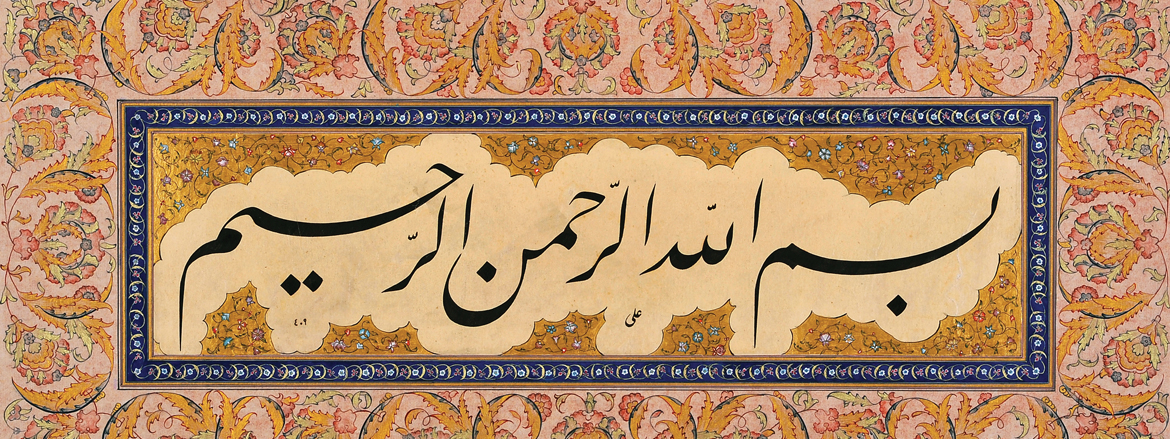 بسم الله الرحمن الرحیم
علی
٤٠٩